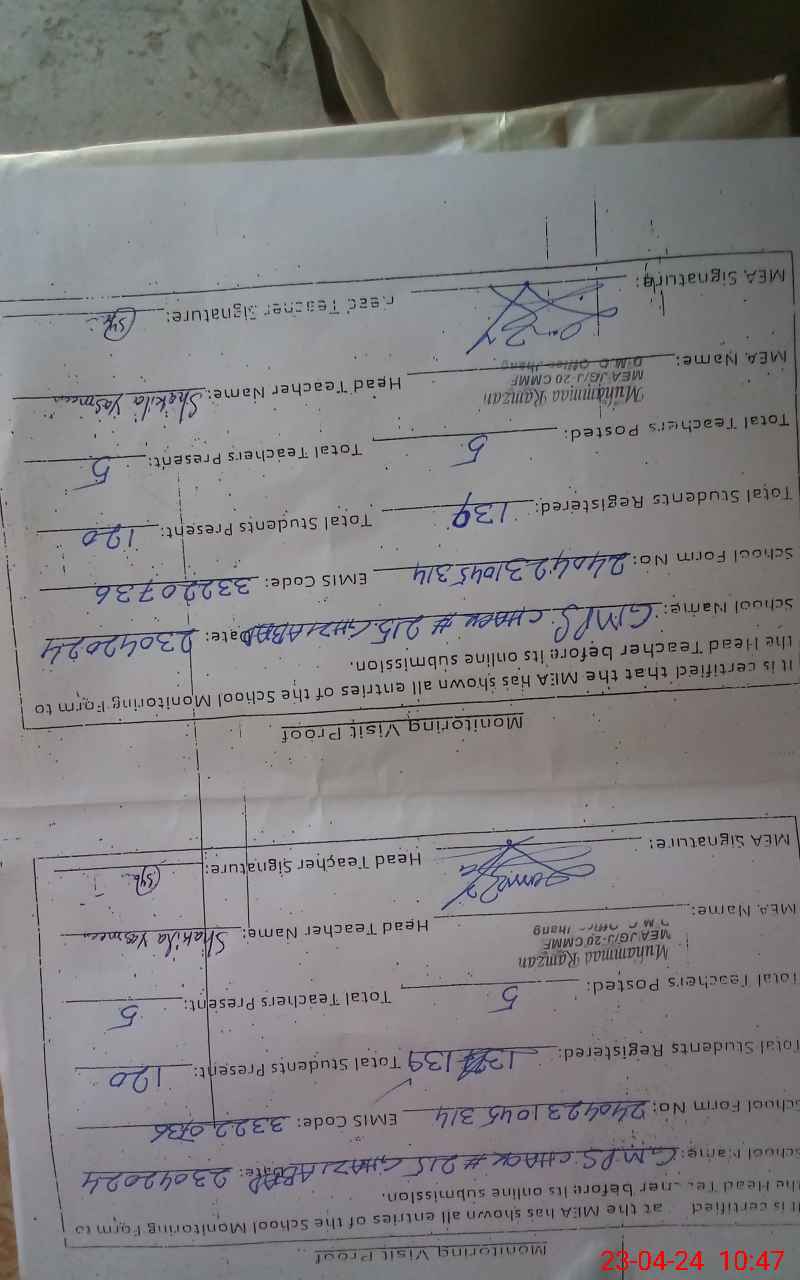 Monitoring Visit Proof
It is certified at the MEA has shown all entries of the School Monitoring Form to
the Head before its online submission.
School Name: G.M.P.S. CHACK # 215 GHAZIABAD Date: 23042024
School Form No: 2404231045314 EMIS Code: 33220736
Total Students Registered: 139 Total Students Present: 120
Total Teachers Posted: 5 Total Teachers Present: 5
Muhammad Ramzan
MEA JG/J-20 CMMF
MEA Name: Head Teacher Name: Shakila Yasmeen
MEA Signature: Head Teacher Signature:
Monitoring Visit Proof
It is certified that the MEA has shown all entries of the School Monitoring Form to
the Head Teacher before its online submission.
School Name: G.M.P.S. CHACK # 215 GHAZIABAD Date: 23042024
School Form No: 2404231045314 EMIS Code: 33220736
Total Students Registered: 139 Total Students Present: 120
Total Teachers Posted: 5 Total Teachers Present: 5
Muhammad Ramzan
MEA JG/J-20 CMMF
D.M.O Office Jhang
MEA Name: Head Teacher Name: Shakila Yasmeen
MEA Signature: Head Teacher Signature:
23-04-24 10:47